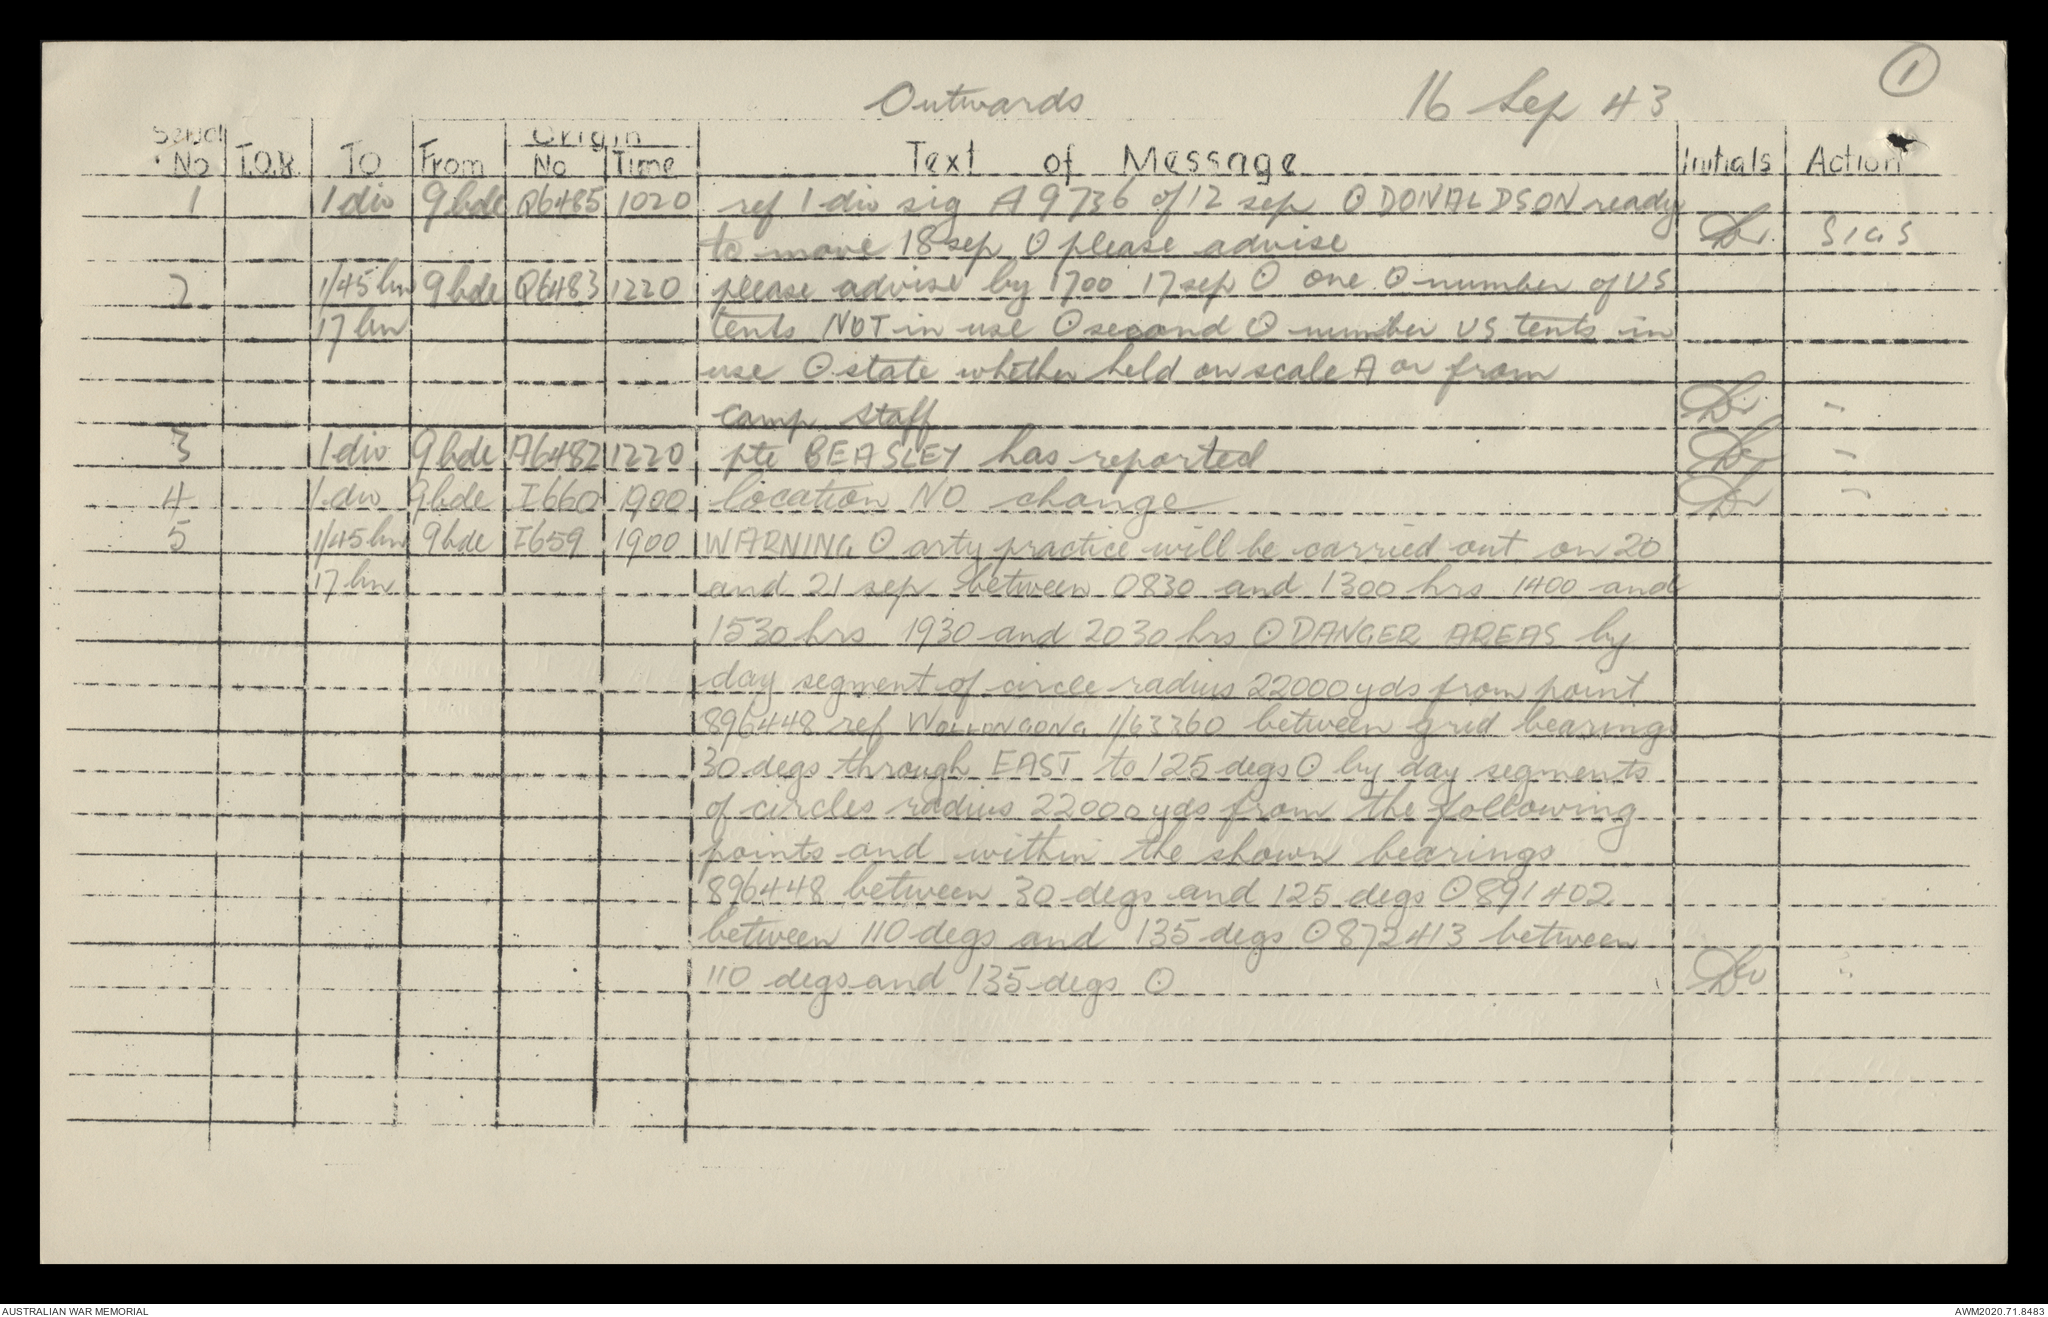 Outwards 16 Sep 43 1
Serial No T.O.R. TO From Origin No Time Text of Message Initials Action
1 1 div 9 bde Q6485 1020 ref 1 div sig A9736 of 12 sep ⊙ DONALDSON ready
to move 18 sep ⊙ please advise SIGS
2 1/45 bn 9 bde Q6483 1220 please advise by 1700 17 sep ⊙ one ⊙ number of US
17 bn tents NOT in use ⊙ second ⊙ number US tents in
use ⊙ state whether held on scale A or from
camp staff "
3 1 div 9 bde A6482 1220 pte BEASLEY has reported "
4 1 div 9 bde I660 1900 location NO change "
5 1/45 bn 9 bde I659 1900 WARNING ⊙ arty practice will be carried out on 20
17 bn and 21 sep between 0830 and 1300 hrs 1400 and
1530 hrs 1930 and 2030 hrs ⊙ DANGER AREAS by
day segment of circle radius 22000 yds from point
896448 ref WOLLONGONG 1/63360 between grid bearings
30 degs through EAST to 125 degs ⊙ by day segments
of circles radius 22000 yds from the following
points and within the shown bearings
896448 between 30 degs and 125 degs ⊙ 891402
between 110 degs and 135 degs ⊙ 872413 between
110 degs and 135 degs ⊙ "
AUSTRALIAN WAR MEMORIAL AWM2020.71.8483